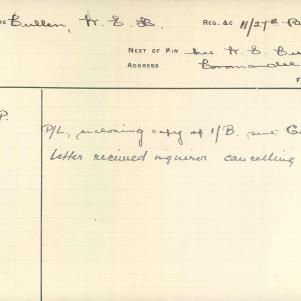 Cullen, W. E. B. Reg. &c 11/27th
Next of Kin Mrs. W. E. Cu
Address Coromandel
P.
P/L, enclosing copy of 1/B. sent
Letter received cancelling